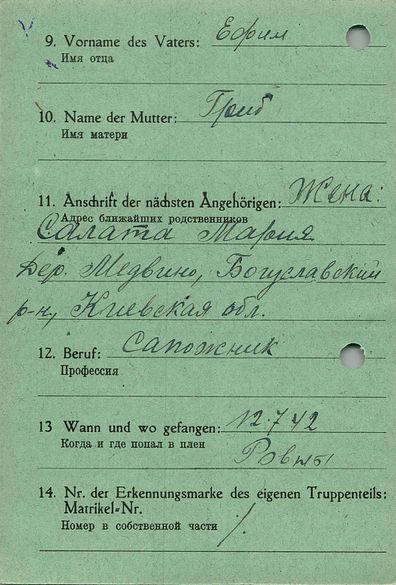 9. Vorname des Vaters: Ефим
Имя отца
10. Name der Mutter: Гриб
Имя матери
11. Anschrift der nächsten Angehörigen: Жена:
Адрес ближайших родственников
Салата Мария
Дер. Медвино, Богуславский
р-н, Киевская обл.
12. Beruf: Сапожник
Профессия
13 Wann und wo gefangen: 12.7.42
Когда и где попал в плен
14. Nr. der Erkennungsmarke des eigenen Truppenteils:
Matrikel-Nr.
Номер в собственной части /.